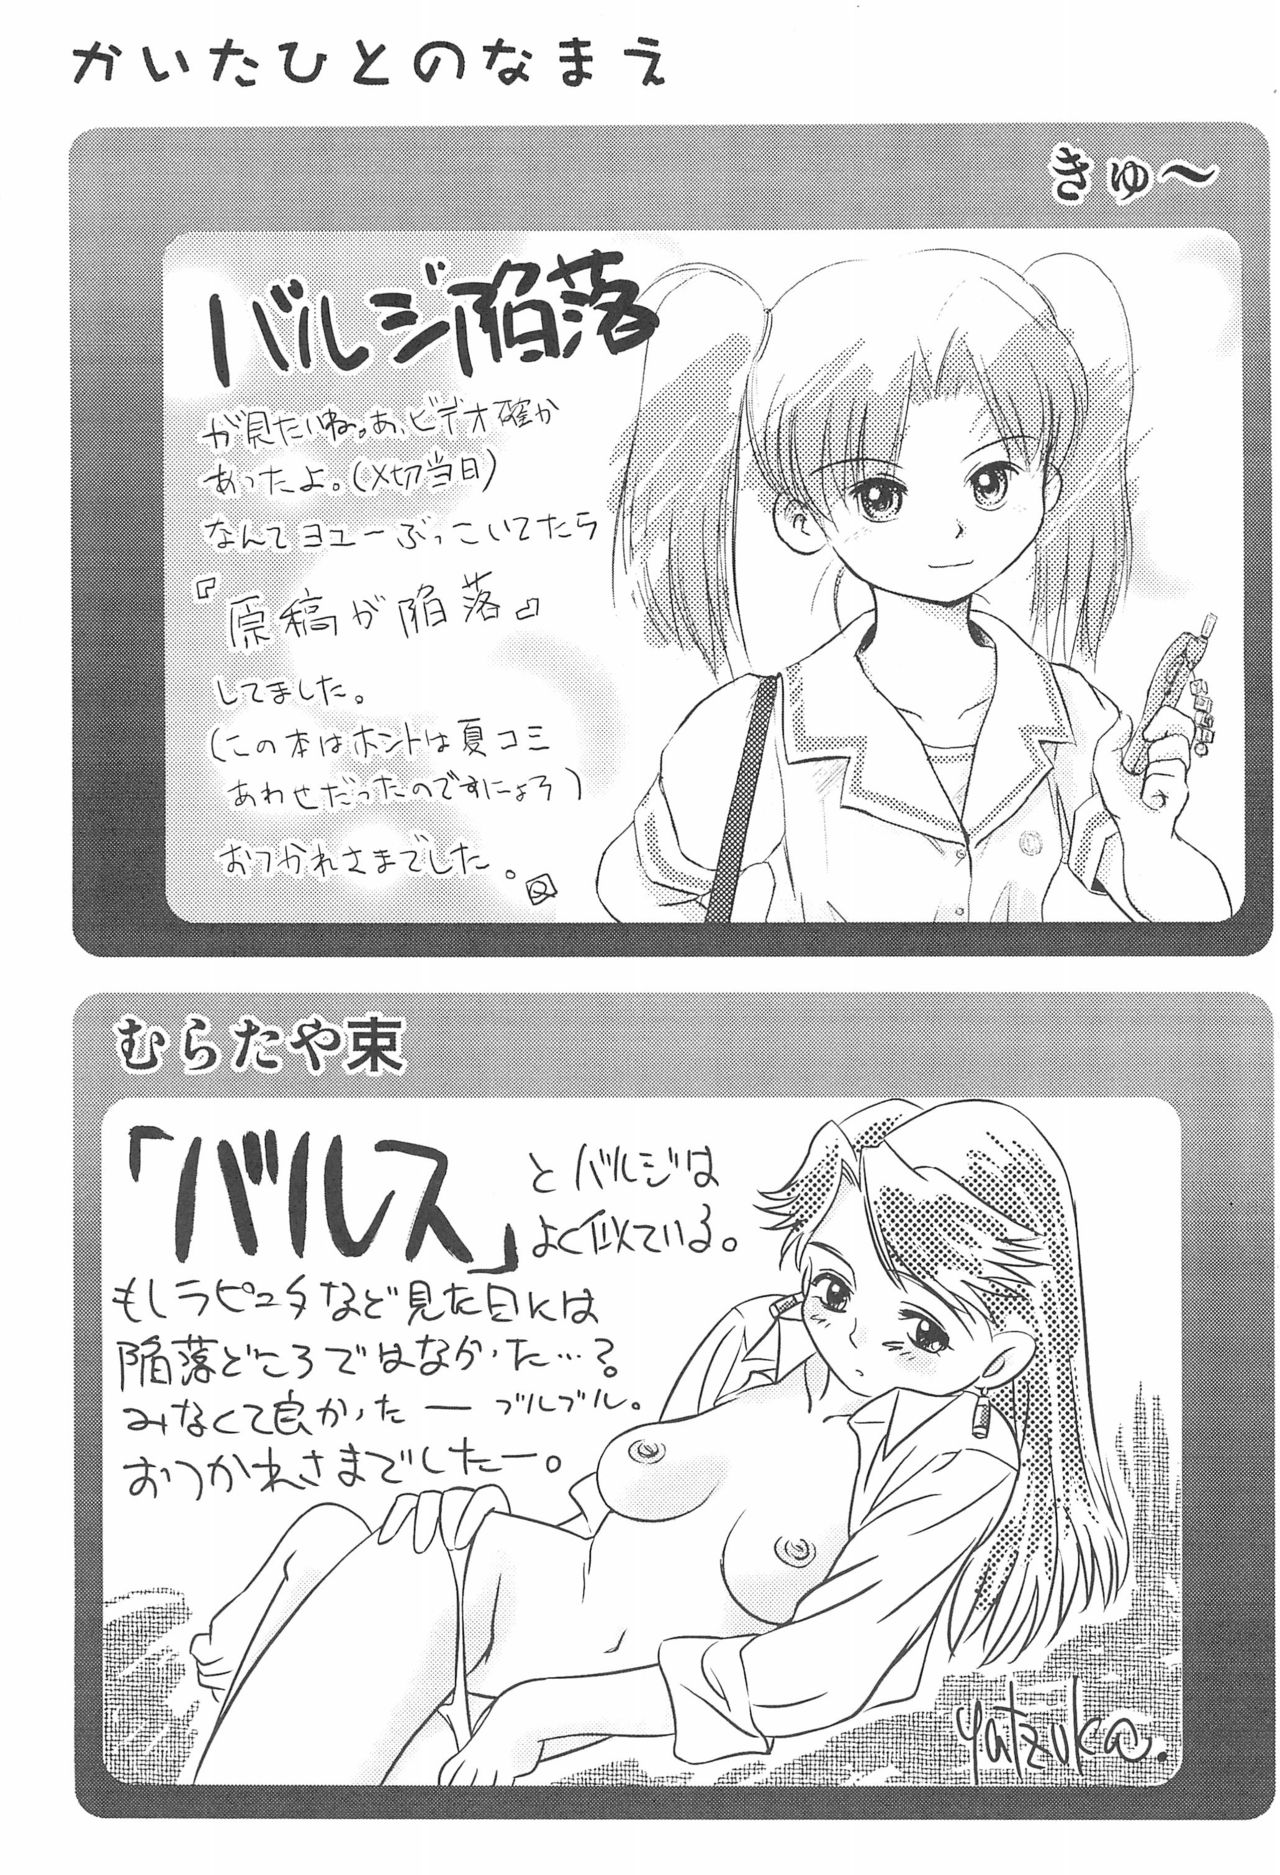 かいたひとのなまえ
きゅ～
バルジ陥落
が見たいね。あ、ビデオ確か
あったよ。(〆切当日)
なんてヨユーぶっこいてたら
『原稿が陥落』
してました。
(この本はホントは夏コミ
あわせだったのですにょろ)
おつかれさまでした。
むらたや束
「バルス」とバルジは
よく似ている。
もしラピュタなど見た日には
陥落どころではなかった…？
みなくて良かったー ブルブル。
おつかれさまでしたー。
yatzuka.